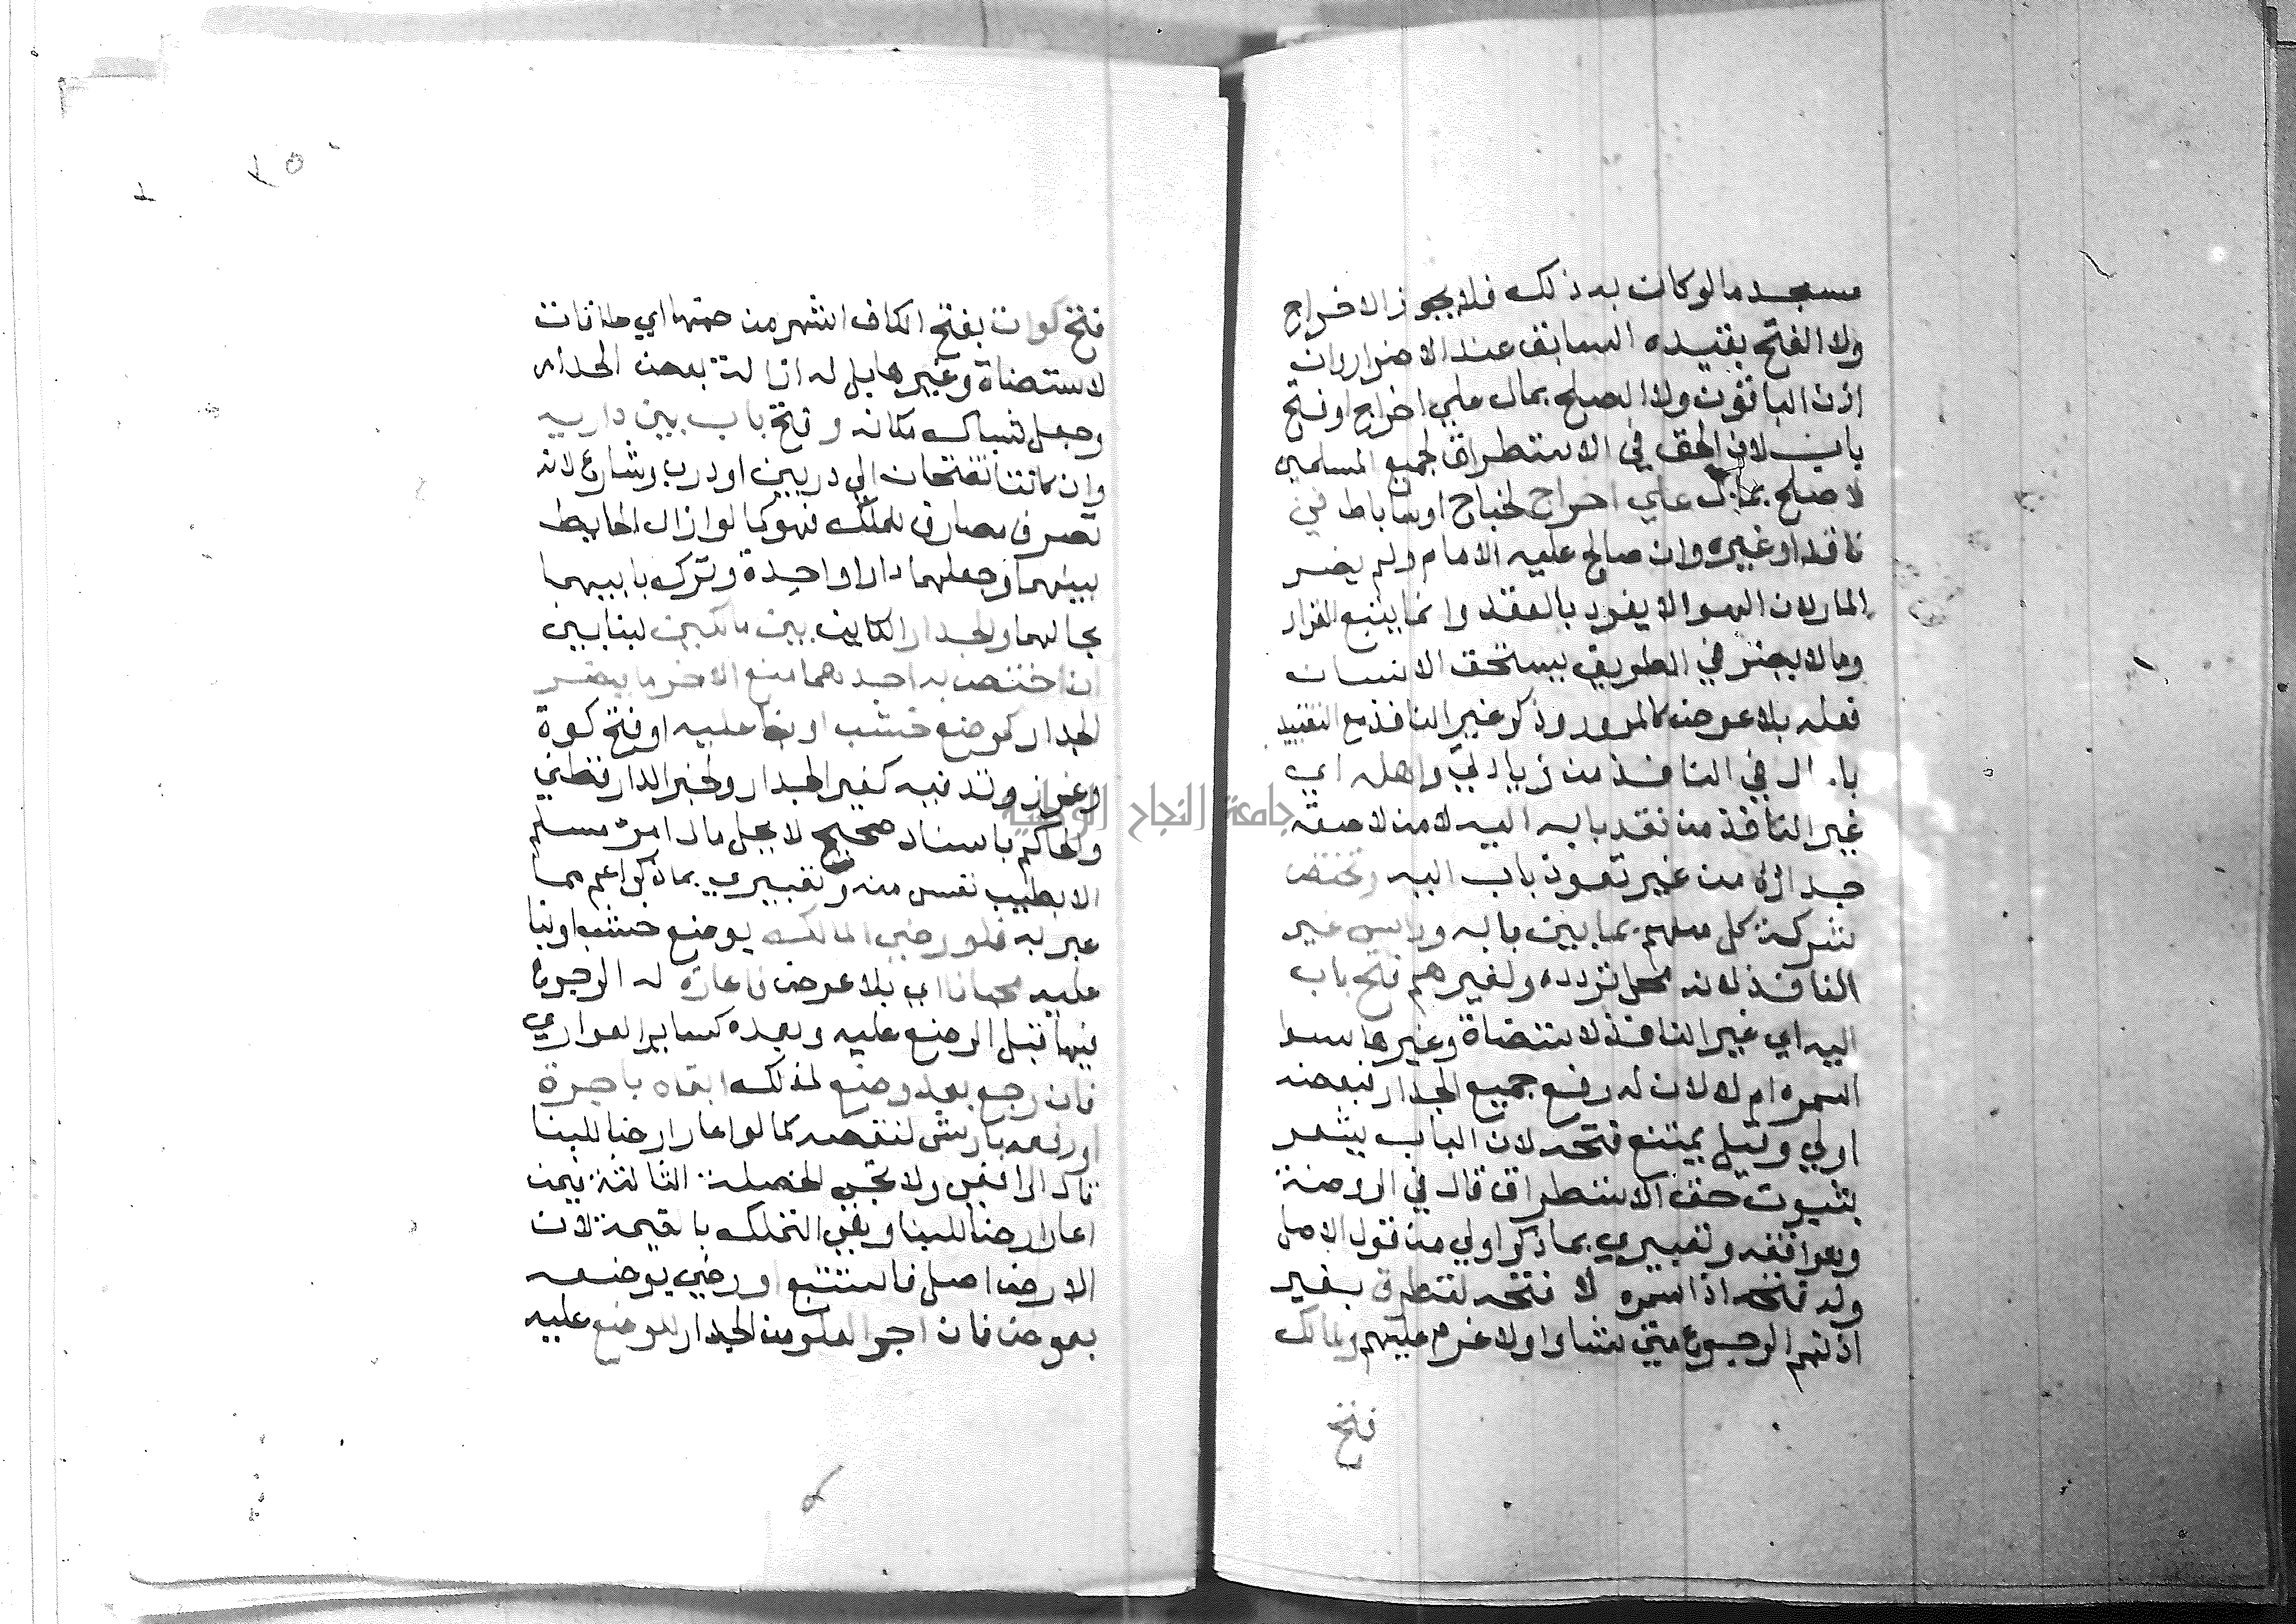 مسجد مالو كان به ذلك فلا يجوز الاخراج
ولا الفتح بقيده السابق عند الاضرار وان
اذن الباقون ولا الصلح بمال علي اخراج او فتح
باب لان الحق في الاستطراق لجميع المسلمين
لا صلح بمال علي اخراج لجناح او ساباط في
نافذ او غيره وان صالح عليه الامام ولم يضر
المار لان الهوا لا يفرد بالعقد وانما يتبع القرار
وما لا يضر في الطريق يستحق الانسان
فعله بلا عوض كالمرور وذكر غير النافذ مع التقييد
في النافذ من زيادتي واهله اي
غير النافذ من نفذ بابه اليه لا من لاصقه
جداره من غير نفوذ باب اليه وتختص
شركة كل منهم بما بين بابه وراس غير
النافذ لانه محل تردده ولغيرهم فتح باب
اليه اي غير النافذ لاستضاة وغيرها سوا
السمره ام لا لان له رفع جميع الجدار فبعضه
اولي وقيل يمتنع فتحه لان الباب يشعر
بثبوت حق الاستطراق قال في الروضة
وهو افقه وتعبيري بما ذكر اولي من قول الاصل
وله فتحه اذا سمره لا فتحه لتطرق بغير
اذنهم الرجوع متي شاوا ولا غرم عليهم ولمالك
فتح
٢٥٠
فتح كوات بفتح الكاف اشهر من ضمها اي طاقات
لاستضاة وغيرها بل له ازالة بعض الجدار
وجعل شباك مكانه وفتح باب بين داريه
وان كانتا تفتحان الي دربين او درب وشارع لانه
تصرف مصادف للملك فهو كما لو ازال الحايط
بينهما وجعلهما دارا واحدة وترك بابيهما
بحالهما والجدار الكاين بين مالكين لبنايين
ان اختص به احدهما منع الاخر ما يضر
الجدار كوضع خشب او بنا عليه او فتح كوة
وغرز وتد فيه كغير الجدار ولخبر الدارقطني
والحاكم باسناد صحيح لا يحل مال امرئ مسلم
الا بطيب نفس منه وتعبيري بما ذكر اعم مما
عبر به فلو رضي المالك بوضع خشب او بنا
عليه مجانا اي بلا عوض فاعارة له الرجوع
فيها قبل الوضع عليه وبعده كساير العواري
فان رجع بعد وضع لذلك ابقاه باجرة
او رفعه بارش لنقصه كما لو اعار ارضا للبنا
قال الرافعي ولا تجي الخصلة الثالثة فيمن
اعار ارضا للبنا وهي التملك بالقيمة لان
الارض اصل فاستتبع او رضي بوضعه
بعوض فان اجر العلو من الجدار للوضع عليه
جامعة النجاح الوطنية